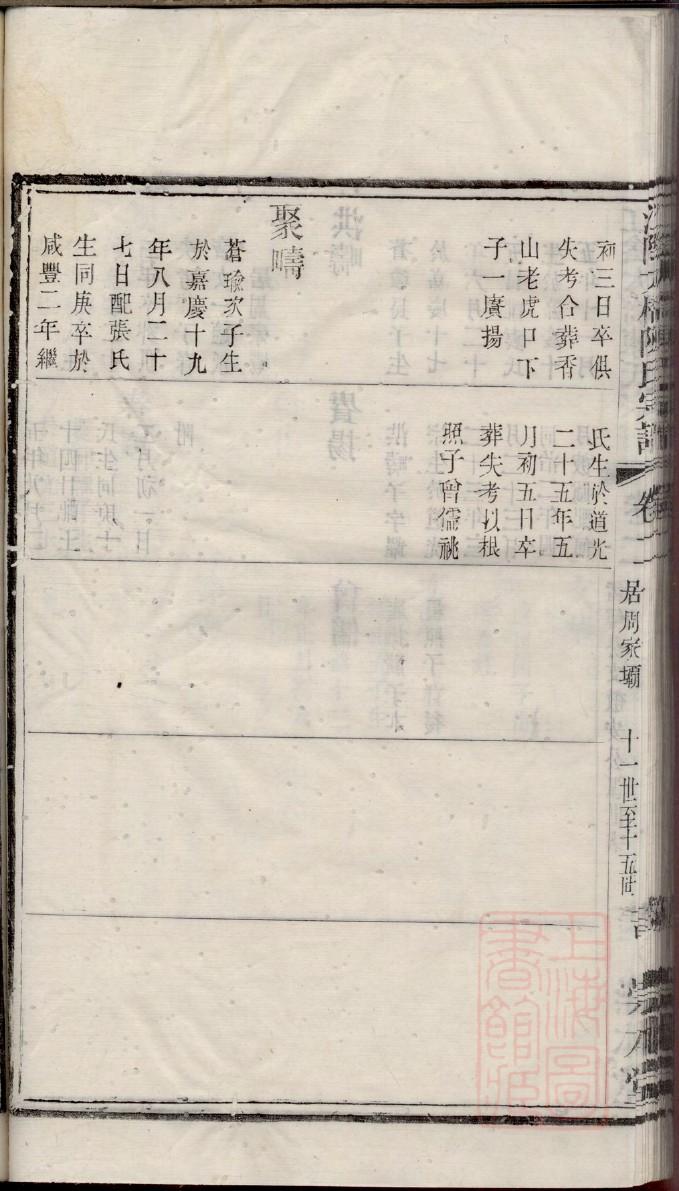 初三日卒俱
失考合葬香
山老虎口下
子一廣揚
聚疇
蒼瑜次子生
於嘉慶十九
年八月二十
七日配張氏
生同庚卒於
咸豐二年繼
氏生於道光
二十五年五
月初五日卒
葬失考以根
照子曾儒祧
宗譜
卷二
居周家壩
十一世至十五世
上海圖
書館